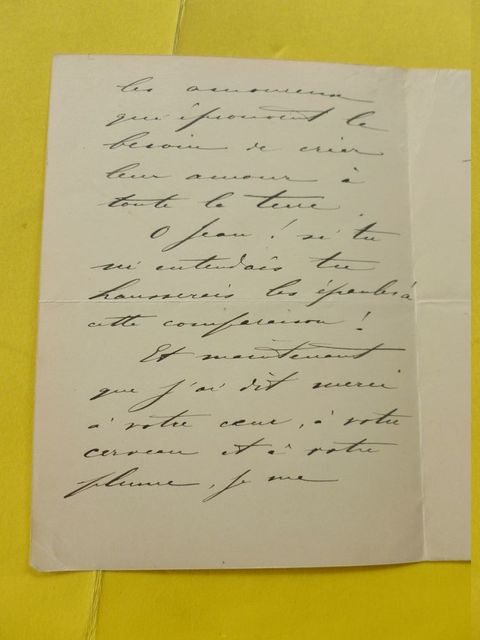 les amoureux
qui éprouvent le
besoin de crier
leur amour à
toute la terre
O Jean ! si tu
m'entendais tu
hausserais les épaules à
cette comparaison !
Et maintenant
que j'ai dit merci
à votre cœur, à votre
cerveau et à votre
plume, je me